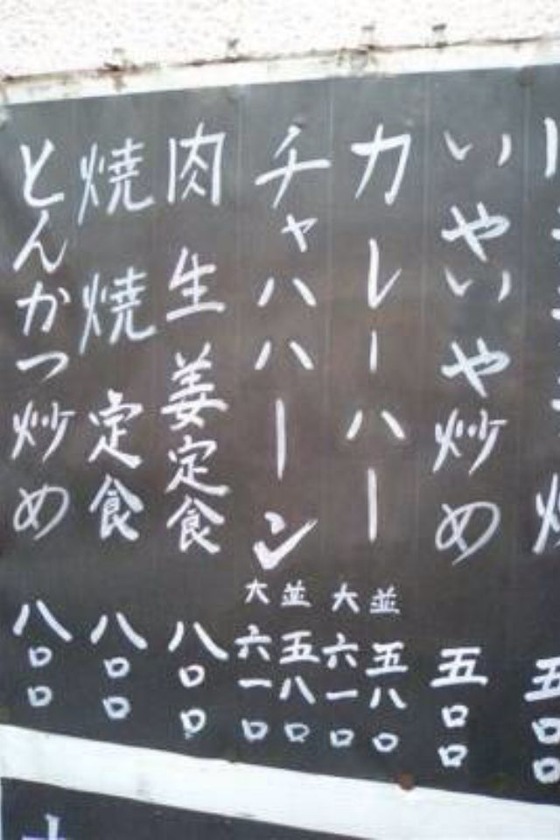 五〇〇
いやいや炒め 五〇〇
カレーハー 並 五八〇
大 六一〇
チャハハーン 並 五八〇
大 六一〇
肉生姜定食 八〇〇
焼焼定食 八〇〇
とんかつ炒め 八〇〇